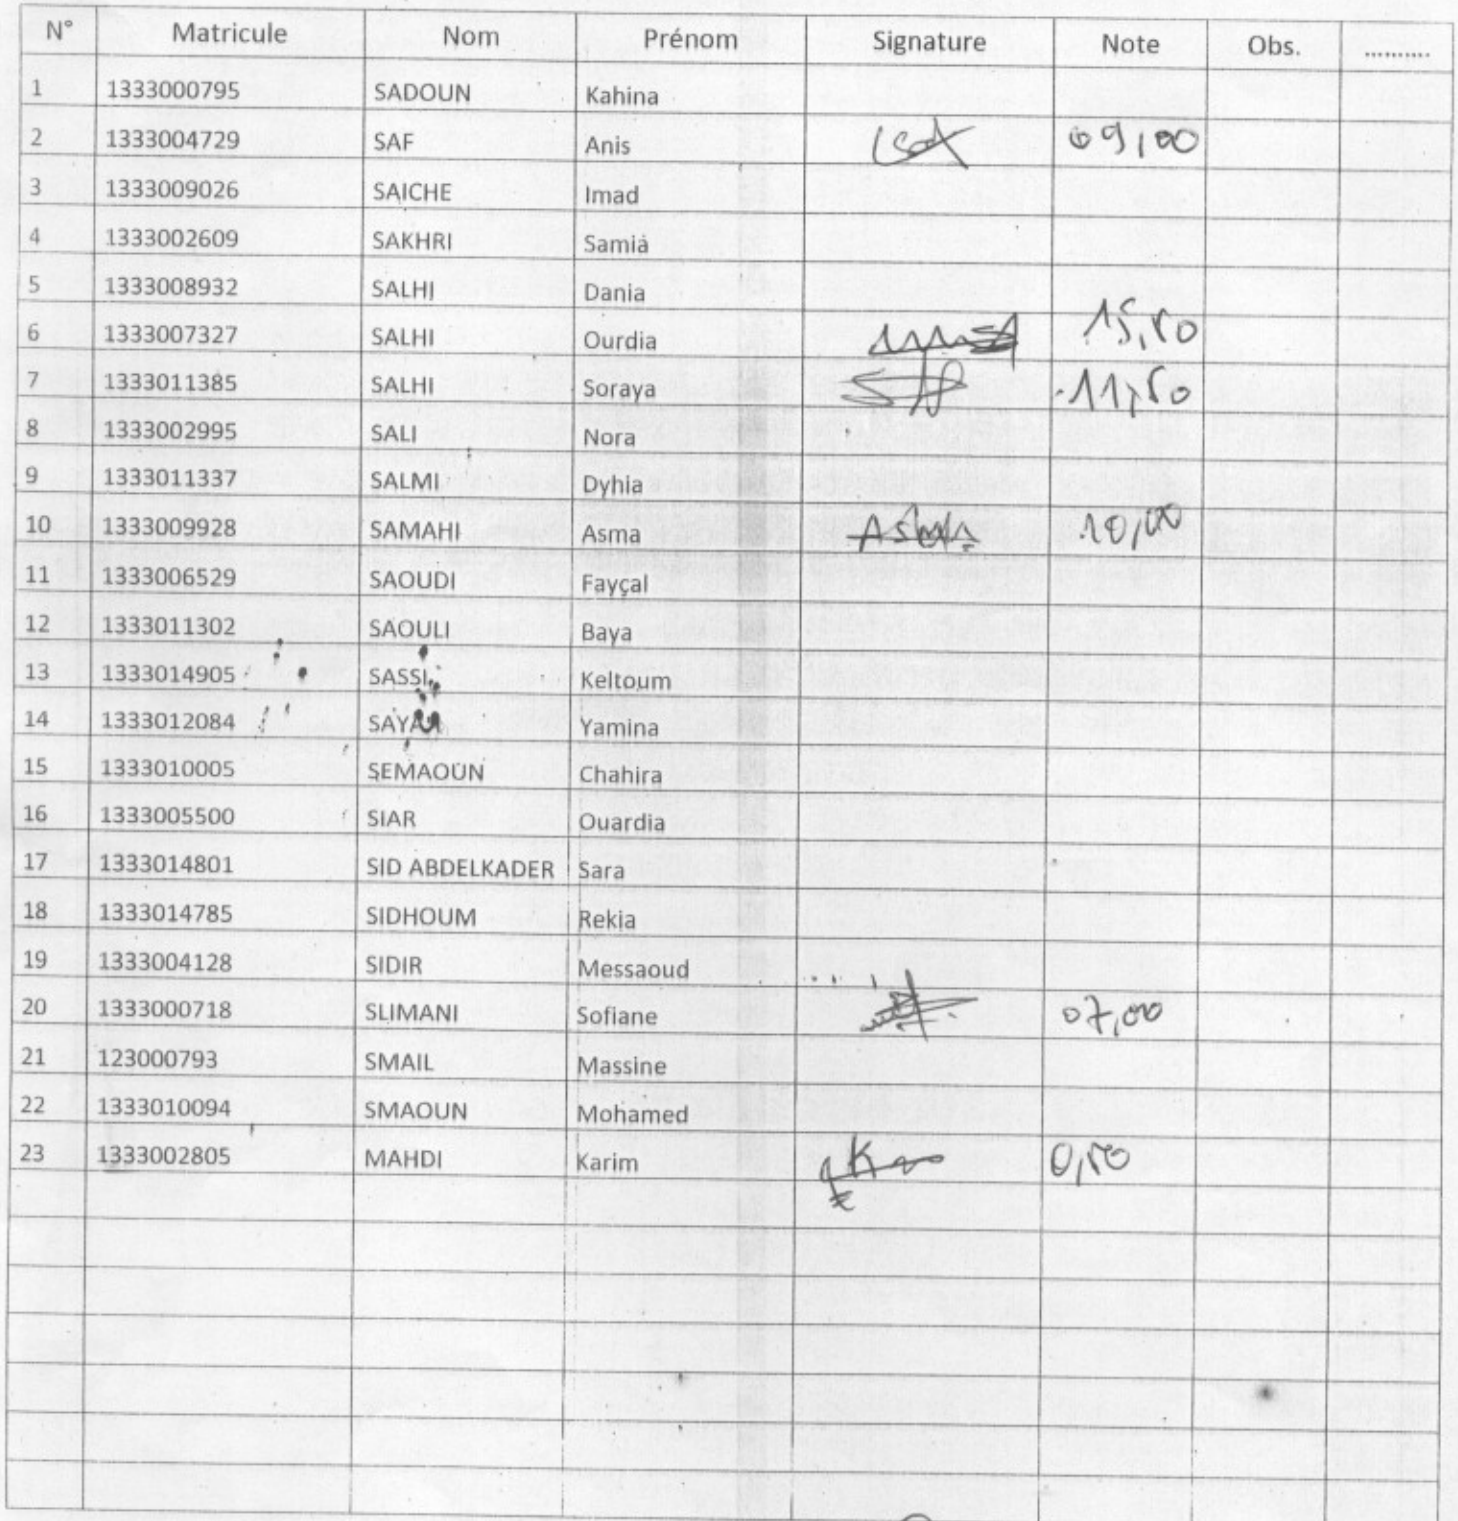 N° Matricule Nom Prénom Signature Note Obs. ..........
1 1333000795 SADOUN Kahina
2 1333004729 SAF Anis 09,00
3 1333009026 SAICHE Imad
4 1333002609 SAKHRI Samia
5 1333008932 SALHI Dania
6 1333007327 SALHI Ourdia 15,50
7 1333011385 SALHI Soraya 11,50
8 1333002995 SALI Nora
9 1333011337 SALMI Dyhia
10 1333009928 SAMAHI Asma Asma 10,00
11 1333006529 SAOUDI Fayçal
12 1333011302 SAOULI Baya
13 1333014905 SASSI Keltoum
14 1333012084 Yamina
15 1333010005 SEMAOUN Chahira
16 1333005500 SIAR Ouardia
17 1333014801 SID ABDELKADER Sara
18 1333014785 SIDHOUM Rekia
19 1333004128 SIDIR Messaoud
20 1333000718 SLIMANI Sofiane 07,00
21 123000793 SMAIL Massine
22 1333010094 SMAOUN Mohamed
23 1333002805 MAHDI Karim 0,50